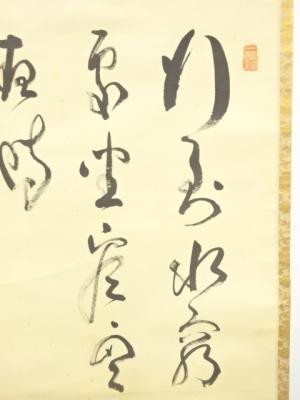 行到水窮
處坐看雲
起時